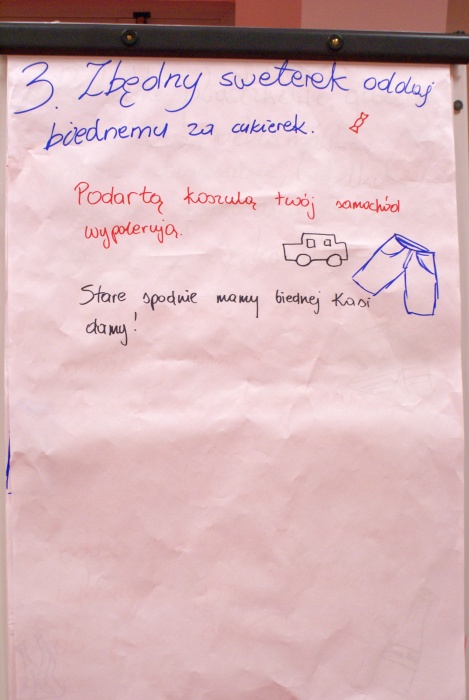 3. Zbędny sweterek oddaj
biednemu za cukierek.
Podartą koszulą twój samochód
wypolerują.
Stare spodnie mamy biednej Kasi
damy!